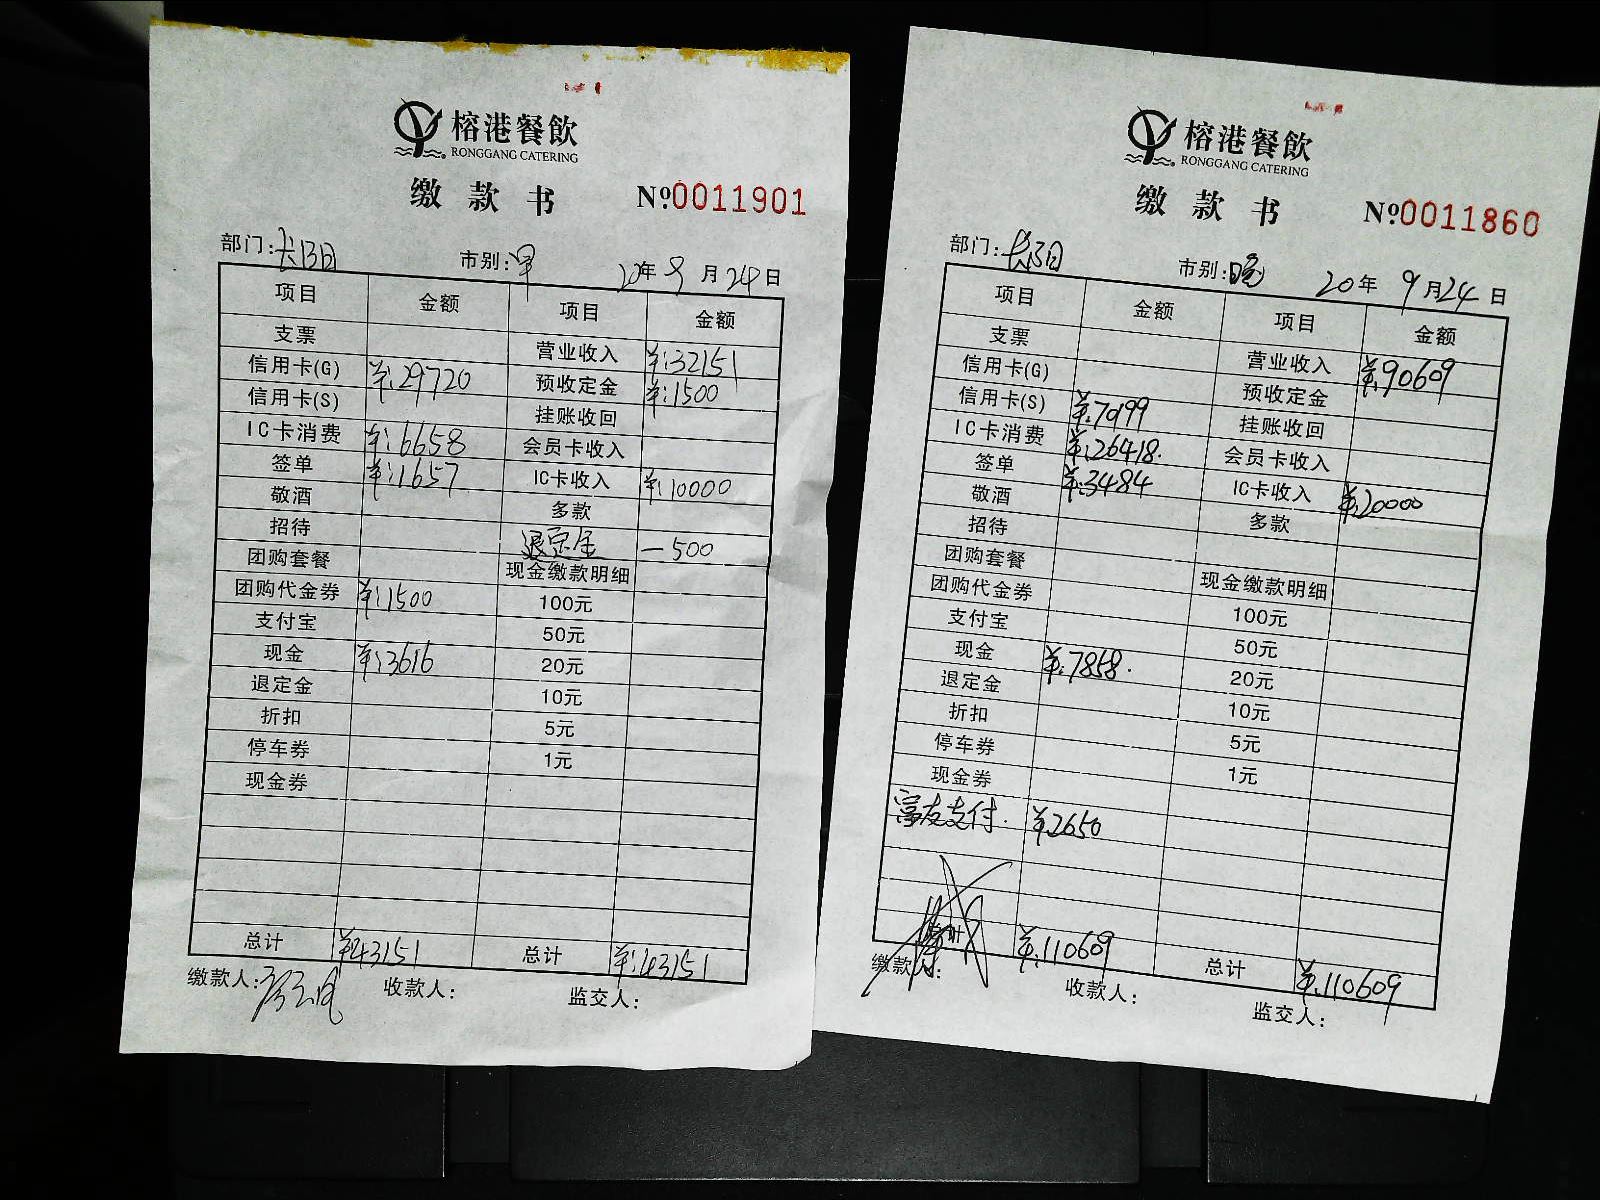 榕港餐飲
RONGGANG CATERING
缴款书 №0011901
部门: 市别:早 20年9月24日
项目 金额 项目 金额
支票 营业收入 ¥:32151
信用卡(G) ¥:29720 预收定金 ¥:1500
信用卡(S) 挂账收回
IC卡消费 ¥:6658 会员卡收入
签单 ¥:1657 IC卡收入 ¥:10000
敬酒 多款
招待 退定金 -500
团购套餐 现金缴款明细
团购代金券 ¥:1500 100元
支付宝 50元
现金 ¥:3616 20元
退定金 10元
折扣 5元
停车券 1元
现金券
总计 ¥43151 总计 ¥:43151
缴款人: 收款人: 监交人:
榕港餐飲
RONGGANG CATERING
缴款书 №0011860
部门: 市别:晚 20年9月24日
项目 金额 项目 金额
支票 营业收入 ¥:90609
信用卡(G) 预收定金
信用卡(S) 挂账收回
IC卡消费 ¥:26418. 会员卡收入
签单 ¥:3484 IC卡收入 ¥:20000
敬酒 多款
招待
团购套餐 现金缴款明细
团购代金券 100元
支付宝 50元
现金 ¥:7858. 20元
退定金 10元
折扣 5元
停车券 1元
现金券
富友支付. ¥:2650
总计 ¥:110609 总计 ¥:110609
缴款人: 收款人: 监交人: